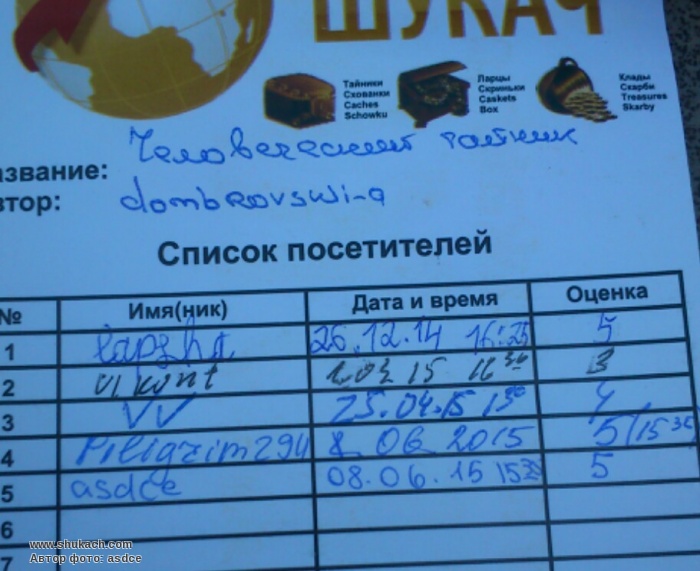 ШУКАЧ
Тайники
Схованки
Caches
Schowku
Ларцы
Скриньки
Caskets
Box
Клады
Скарби
Treasures
Skarby
азвание: Человеческий тайник
втор:
Список посетителей
№ Имя(ник) Дата и время Оценка
1 lapsha 26.12.14 16:25 5
2 vikont 15 3
3 VV 25.04.15 4
4 Piligrim294 8 06 2015 5/15 35
5 asdce 08.06.15 15 35 5
6
7
www.shukach.com
Автор фото: asdce